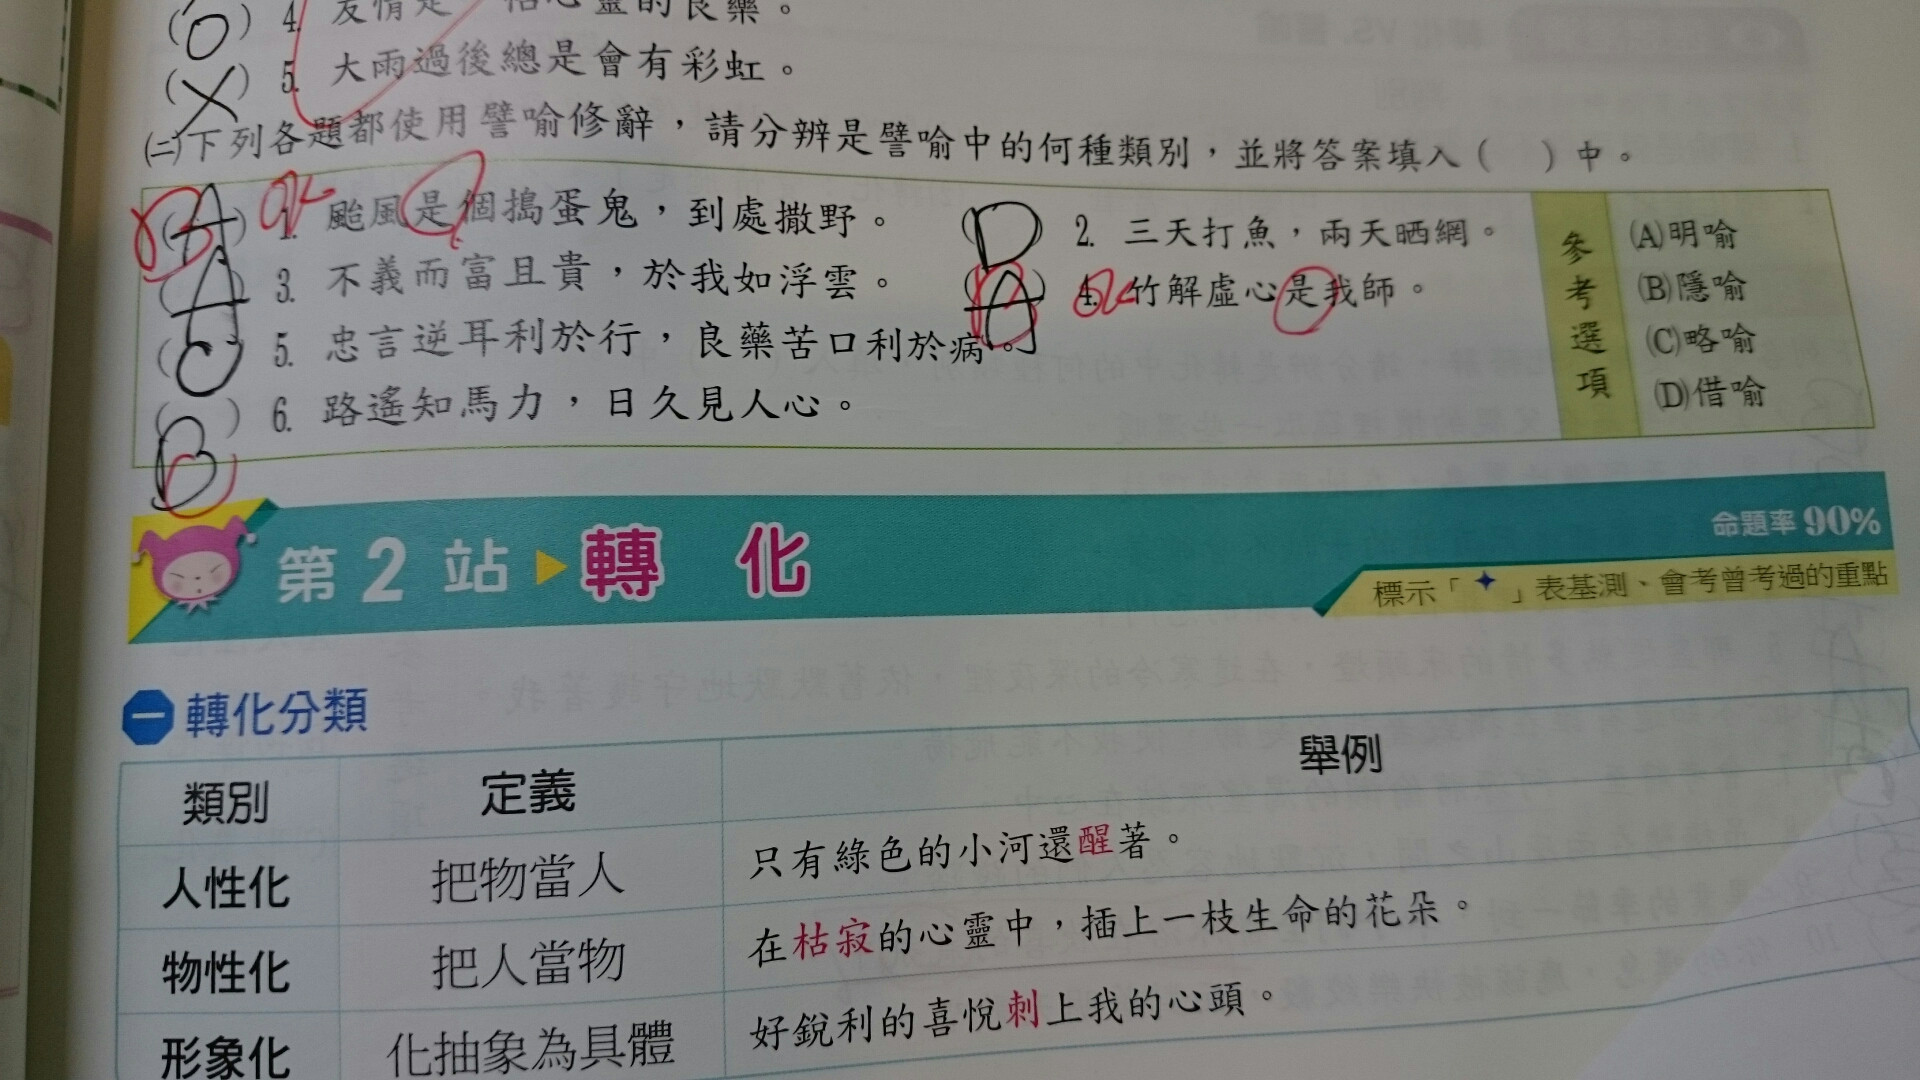 (O) 4. 友情是 帖心靈的良藥。
(X) 5. 大雨過後總是會有彩虹。
㈡下列各題都使用譬喻修辭，請分辨是譬喻中的何種類別，並將答案填入（ ）中。
(A) B ok 1. 颱風是個搗蛋鬼，到處撒野。 (D) 2. 三天打魚，兩天晒網。
(A) 3. 不義而富且貴，於我如浮雲。 (A) ok 4. 竹解虛心是我師。
(C) 5. 忠言逆耳利於行，良藥苦口利於病。
(B) 6. 路遙知馬力，日久見人心。
參考選項
(A)明喻
(B)隱喻
(C)略喻
(D)借喻
第2站 轉化
命題率90%
標示「✦」表基測、會考曾考過的重點
一 轉化分類
類別 定義 舉例
人性化 把物當人 只有綠色的小河還醒著。
物性化 把人當物 在枯寂的心靈中，插上一枝生命的花朵。
形象化 化抽象為具體 好銳利的喜悅刺上我的心頭。